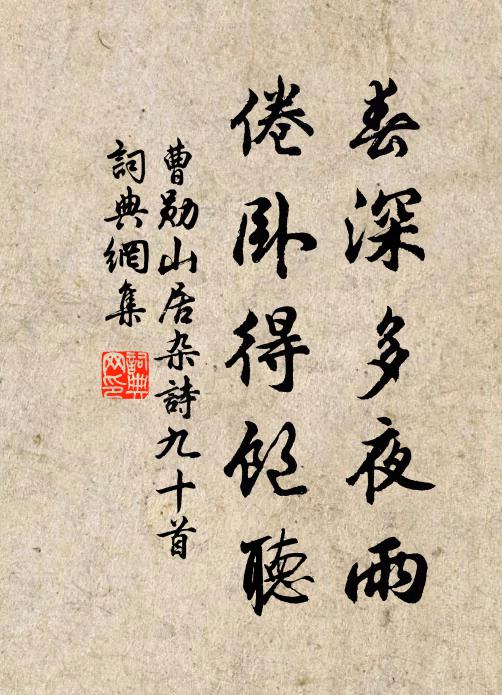 春深多夜雨
倦卧得飽聽
曹勛山居杂詩九十首
詞典網集
詞典
网印